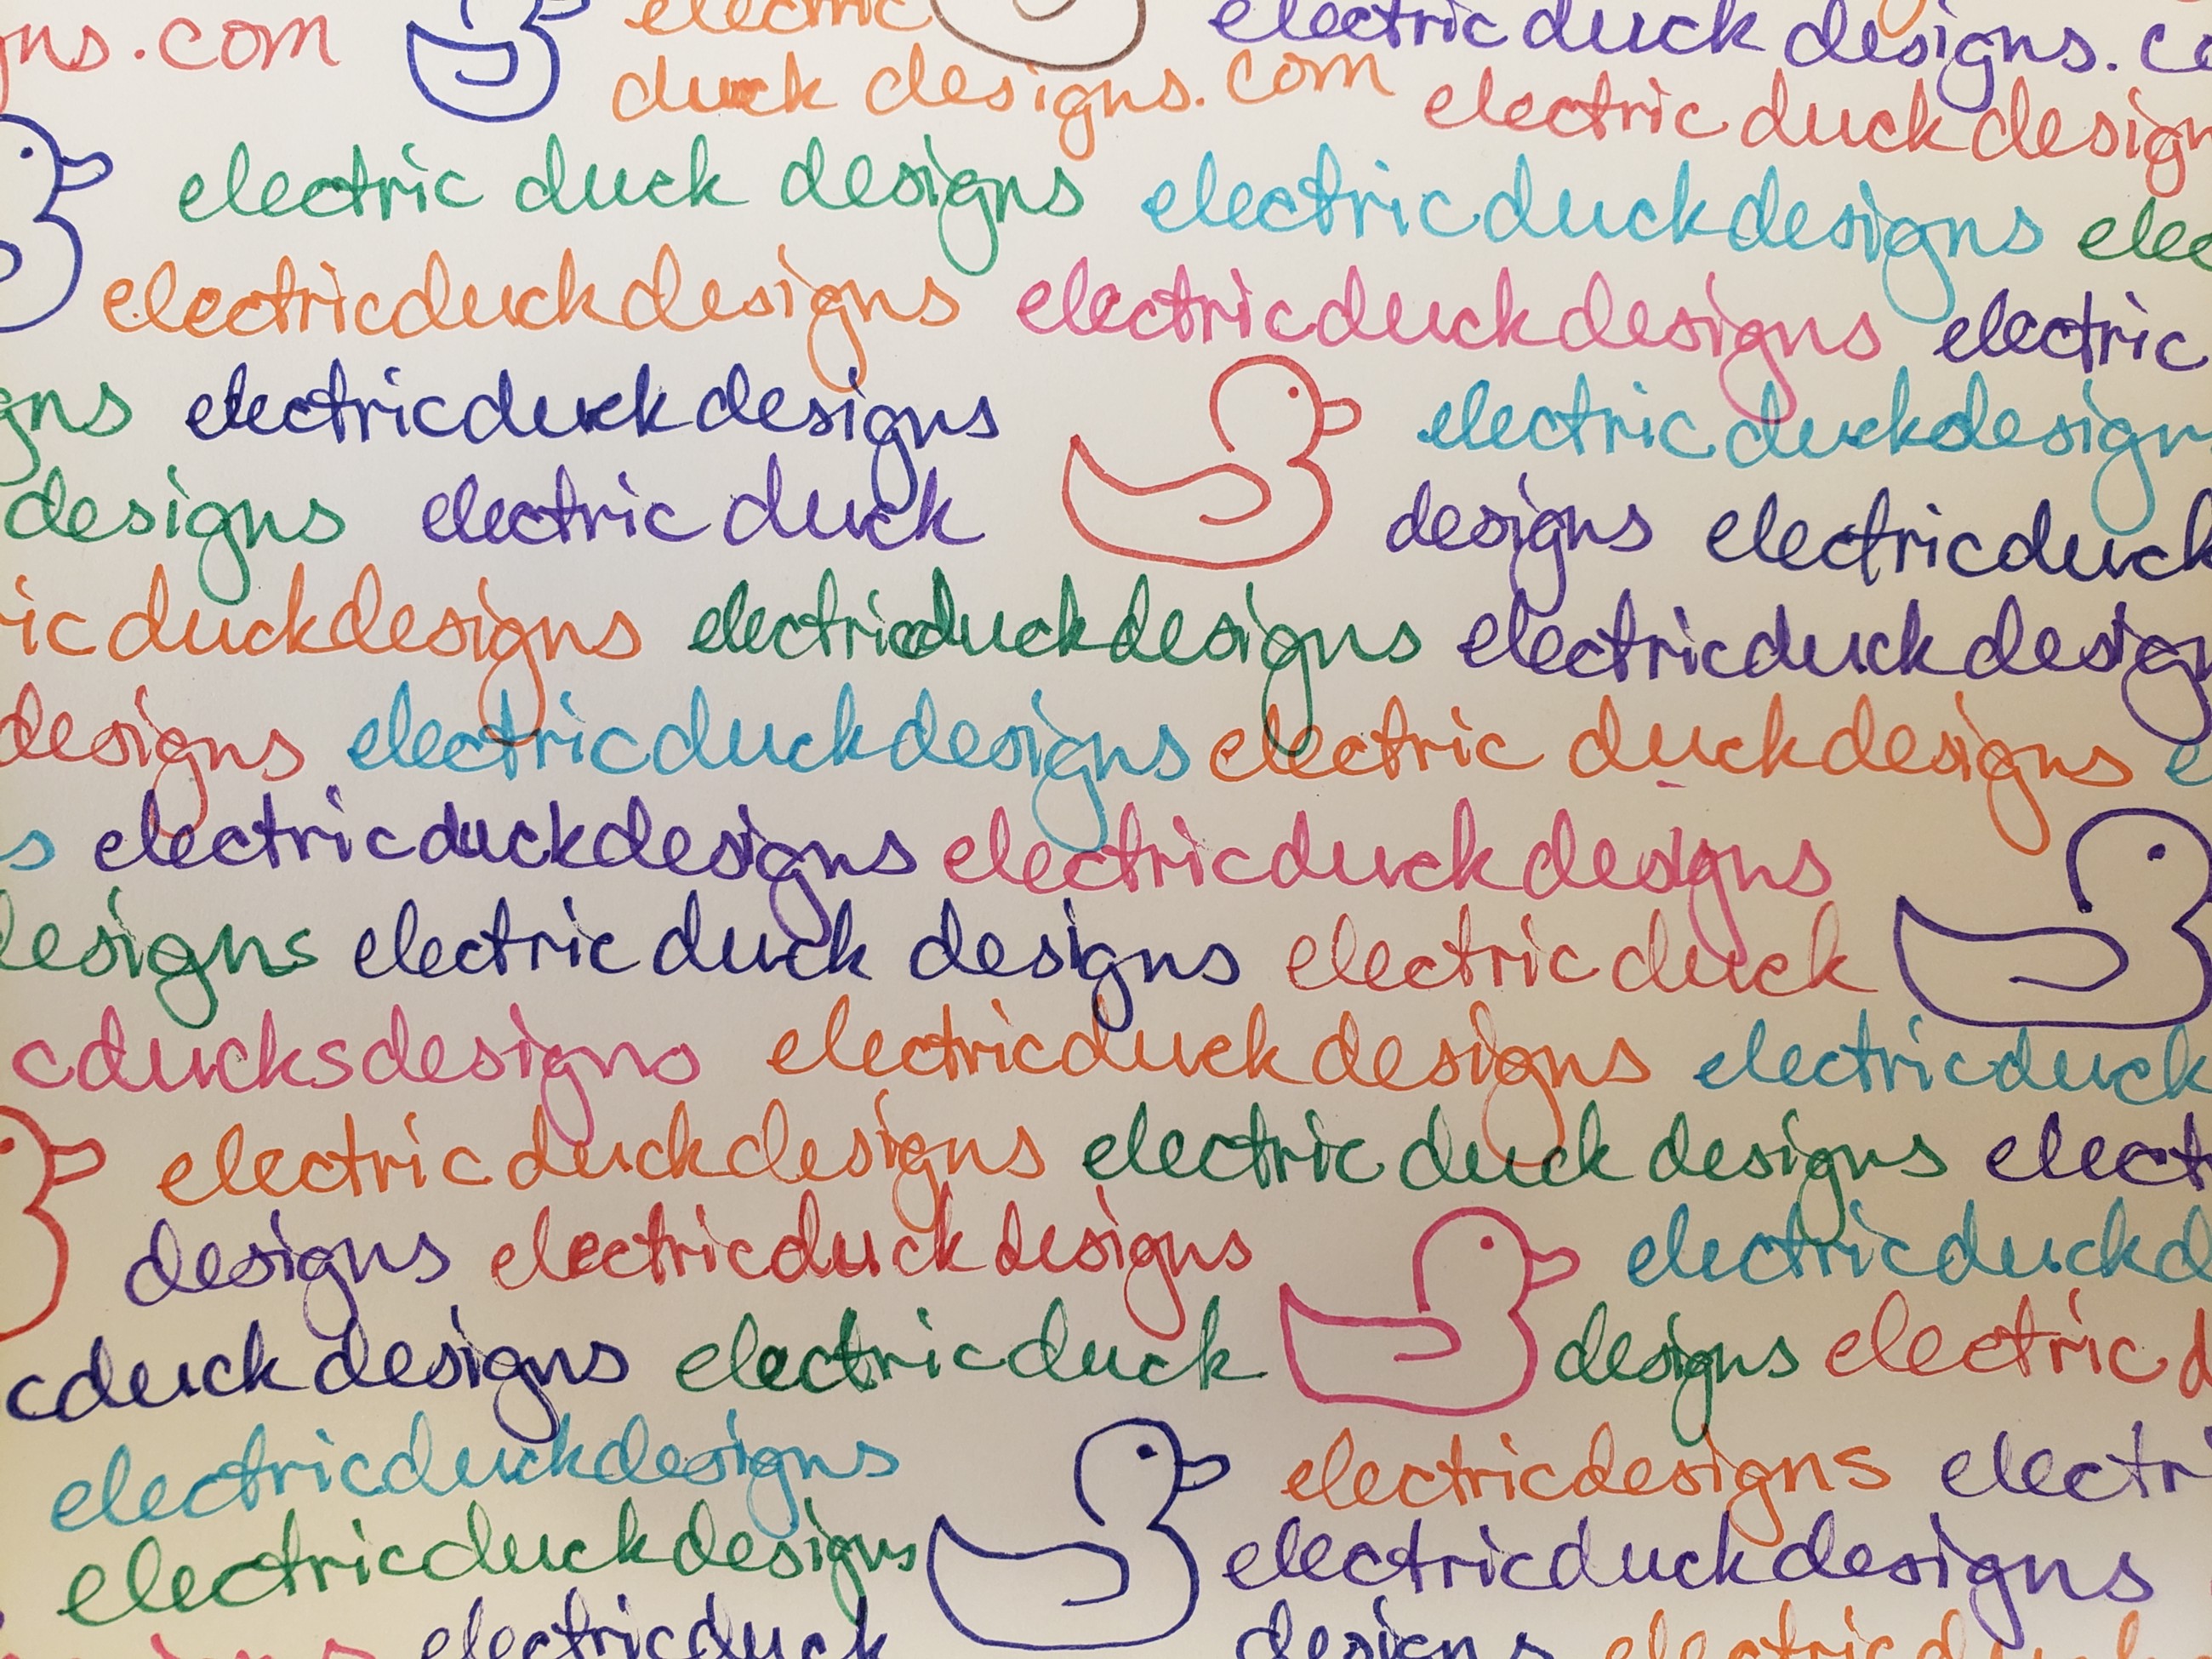 gns.com electric electricduck designs. co
duck designs.com electric duck design
electric duck designs electricduckdesigns elec
electricduckdesigns electricduckdesigns electric
gns electricduckdesigns electric duckdesign
designs electric duck designs electricduck
ic duckdesigns electricduckdesigns electricduckdesig
designs electricduckdesigns electric duckdesigns e
s electricduckdesigns electricduckdesigns
designs electric duck designs electric duck
cducksdesigns electricduckdesigns electricduck
electric duckdesigns electric duck designs elect
designs electricduckdesigns electricduckd
cduck designs electricduck designs electric d
electricduckdesigns electricdesigns electri
electricduckdesigns electricduckdesigns
electricduck designs electricduck